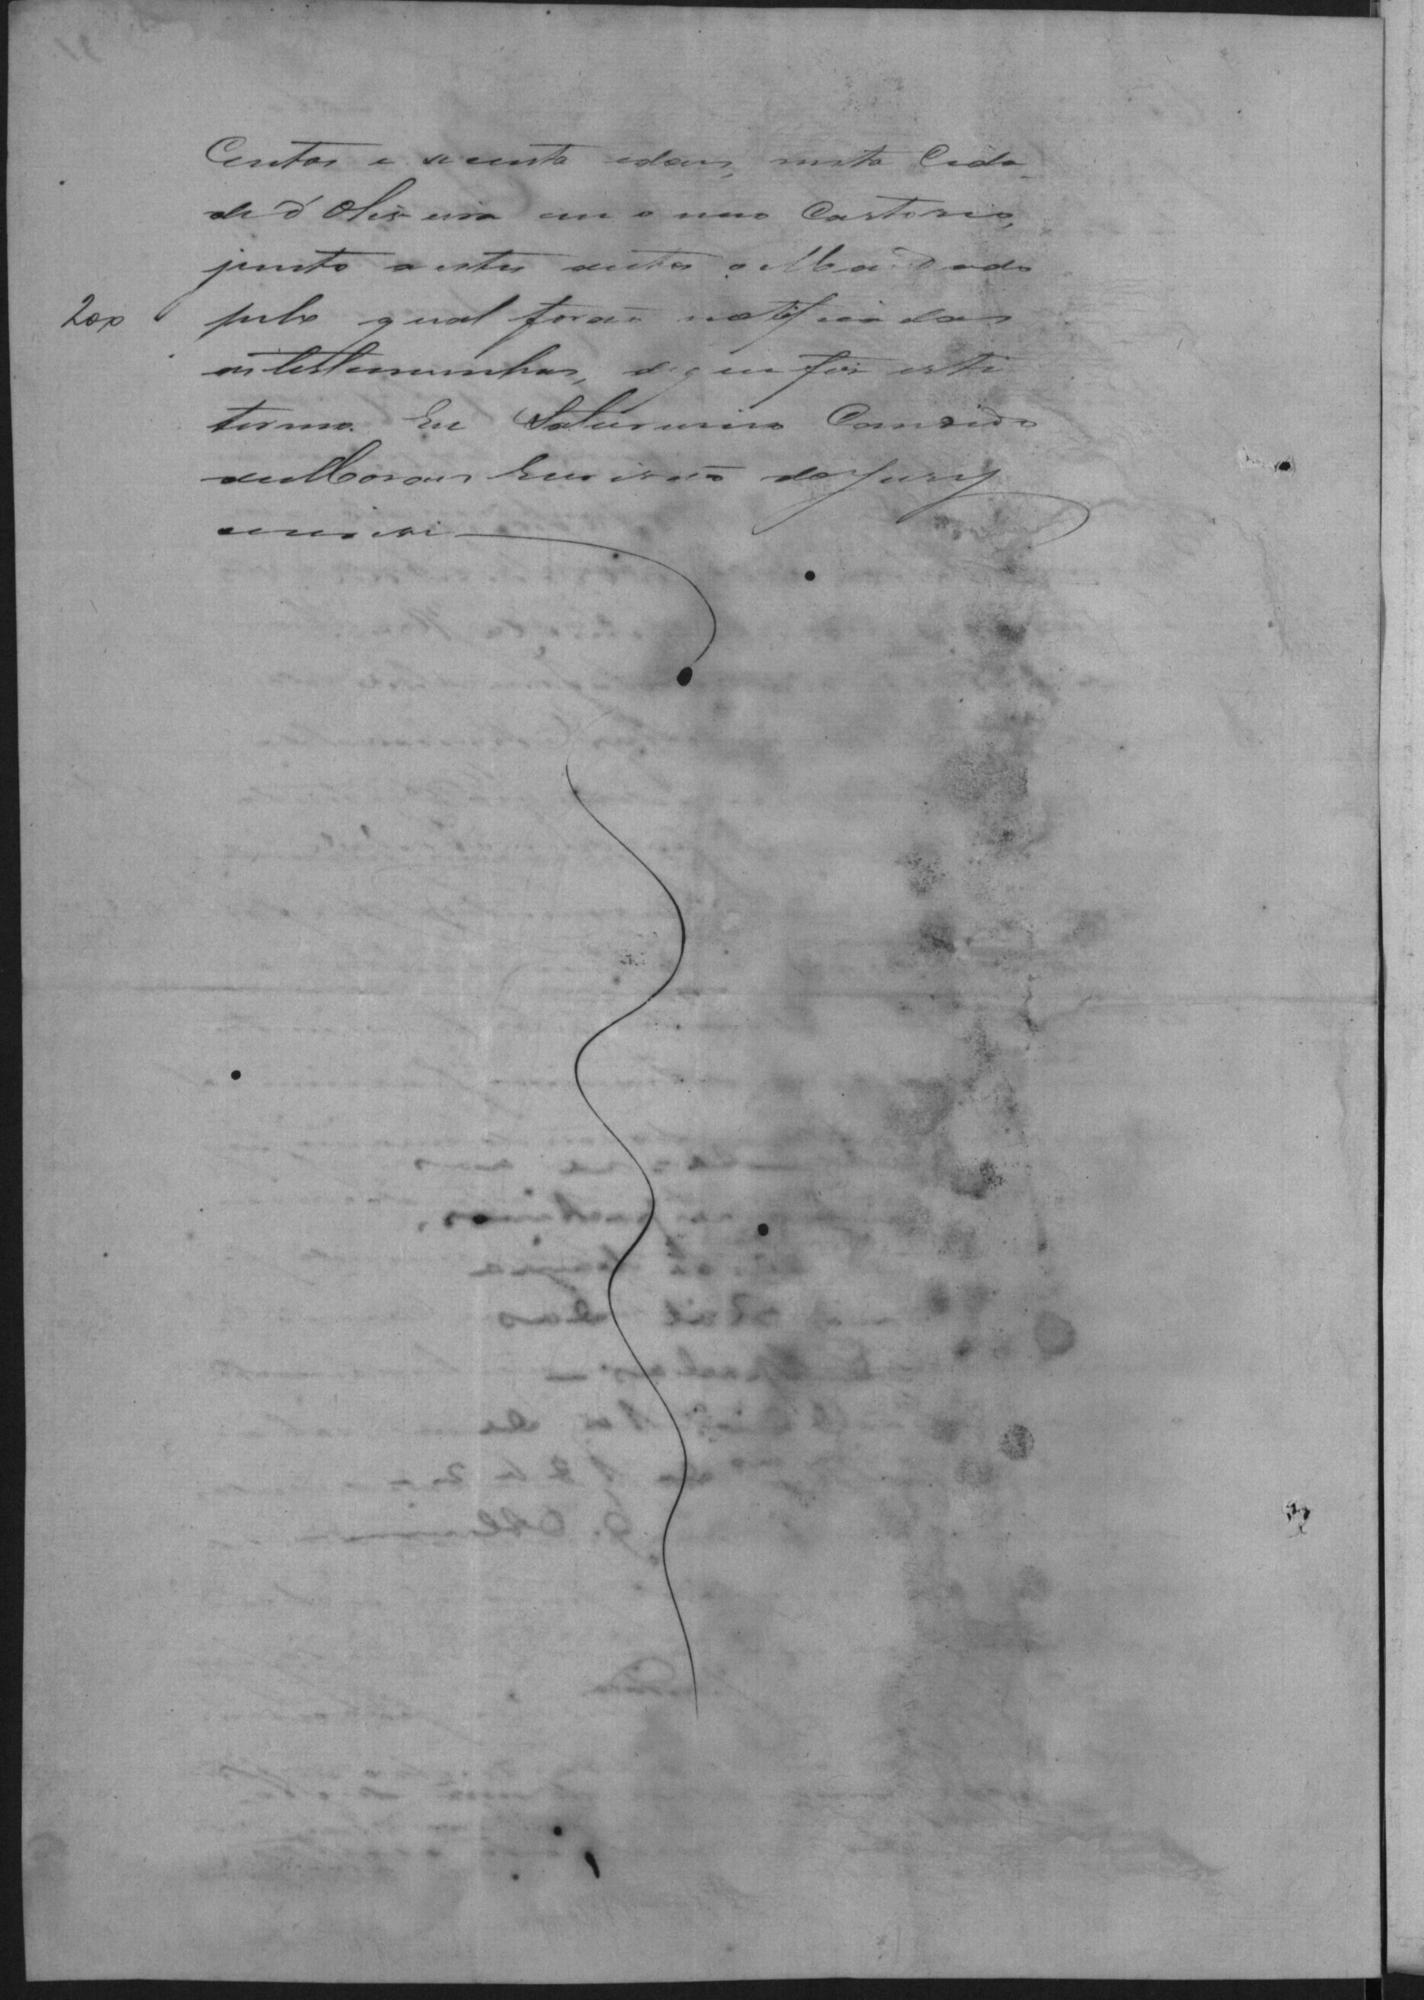 Centos e secenta e dous, nesta Cida
de d'Oliveira em o meo Cartorio,
junto a estes autos o Mandado
200 pelo qual forão notificadas
as testemunhas, de que fis este
termo. Eu Saturnino Candido
de Moraes Escrivão do Jury
escrivi